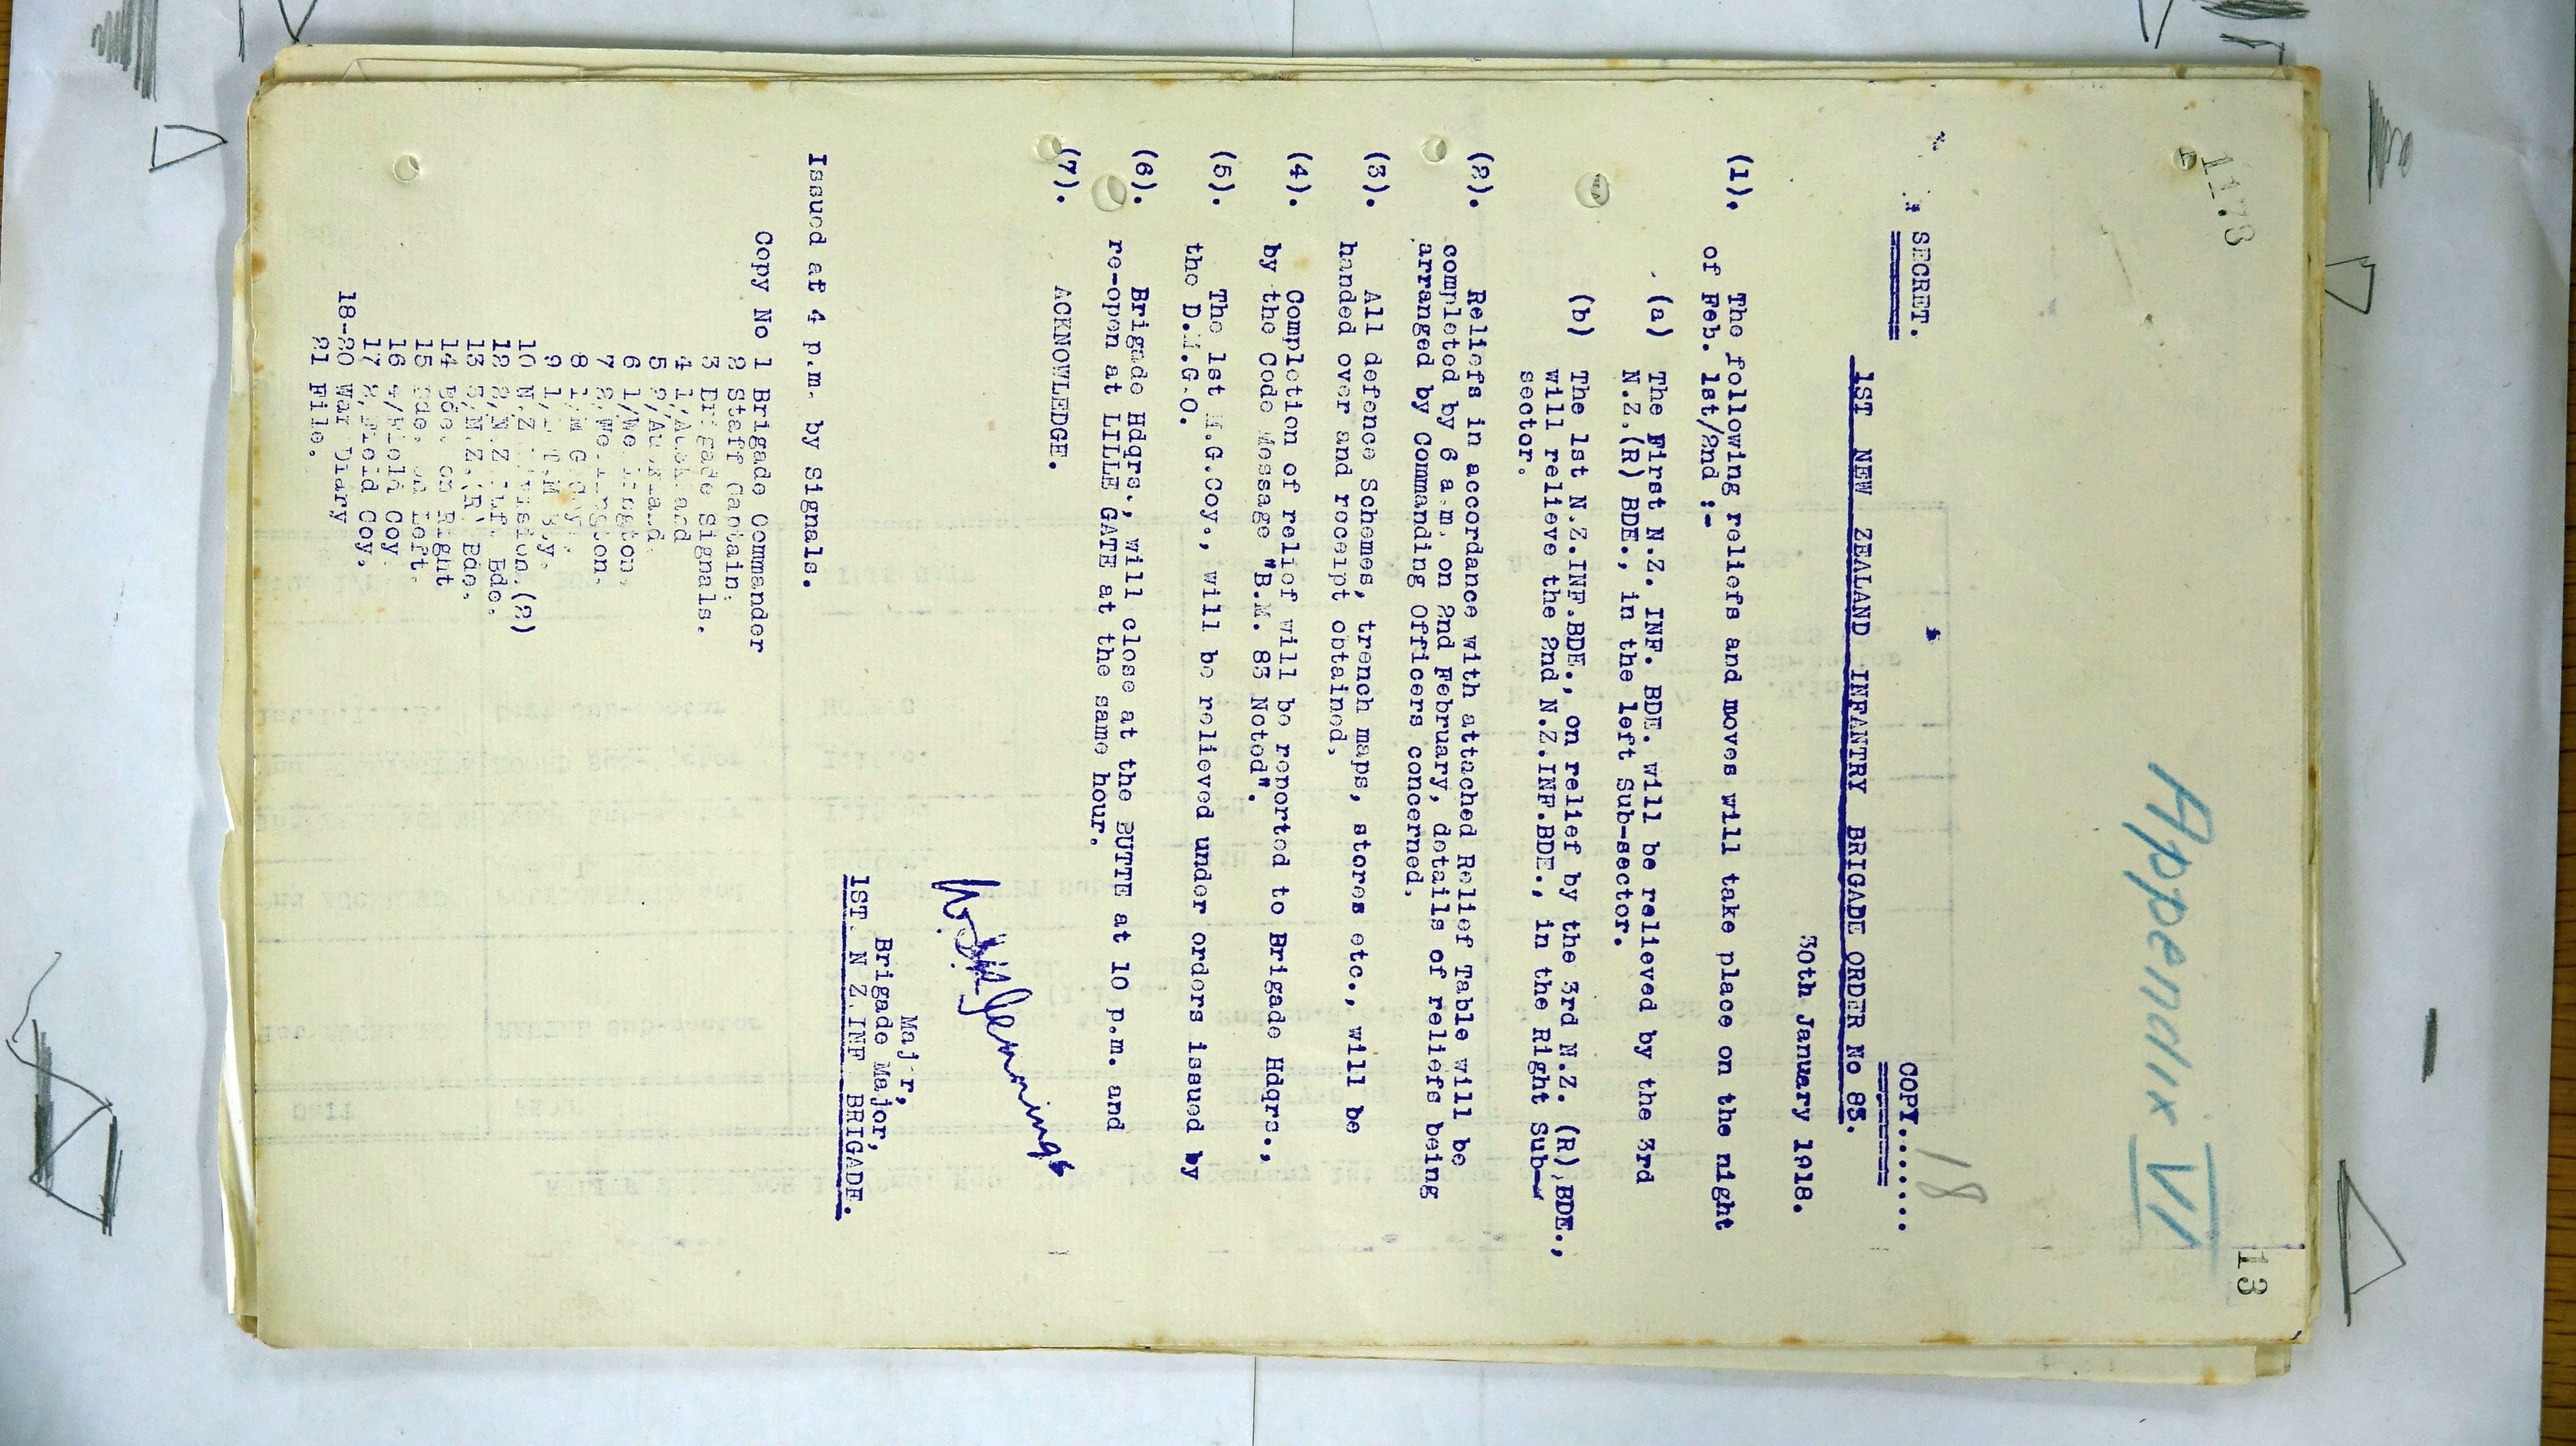 1173
13
Appendix VI
SECRET.
COPY....... 18
1ST NEW ZEALAND INFANTRY BRIGADE ORDER No 83.
30th January 1918.
(1). The following reliefs and moves will take place on the night
of Feb. 1st/2nd :-
(a) The First N.Z. INF. BDE. will be relieved by the 3rd
N.Z.(R) BDE., in the left Sub-sector.
(b) The 1st N.Z.INF.BDE., on relief by the 3rd N.Z. (R),BDE.,
will relieve the 2nd N.Z.INF.BDE., in the Right Sub-
sector.
(2). Reliefs in accordance with attached Relief Table will be
completed by 6 a.m. on 2nd February, details of reliefs being
arranged by Commanding Officers concerned.
(3). All defence Schemes, trench maps, stores etc., will be
handed over and receipt obtained.
(4). Completion of relief will be reported to Brigade Hdqrs.,
by the Code Message "B.M. 83 Noted".
(5). The 1st M.G.Coy., will be relieved under orders issued by
the D.M.G.O.
(6). Brigade Hdqrs., will close at the BUTTE at 10 p.m. and
re-open at LILLE GATE at the same hour.
(7). ACKNOWLEDGE.
Jennings
Major,
Brigade Major,
1ST. N Z.INF BRIGADE.
Issued at 4 p.m. by Signals.
Copy No 1 Brigade Commander
2 Staff Captain.
3 Brigade Signals.
4 1/Auckland
5 2/Auckland.
6 1/Wellington.
7 2/Wellington.
8 1/M G Coy.
9 1/L.T.M Bty.
10 N.Z. Division.(2)
12 2/N.Z Inf. Bde.
13 3/N.Z.(R) Bde.
14 Bde. on Right
15 Bde. on Left.
16 4/Field Coy
17 2/Field Coy.
18-20 War Diary
21 File.